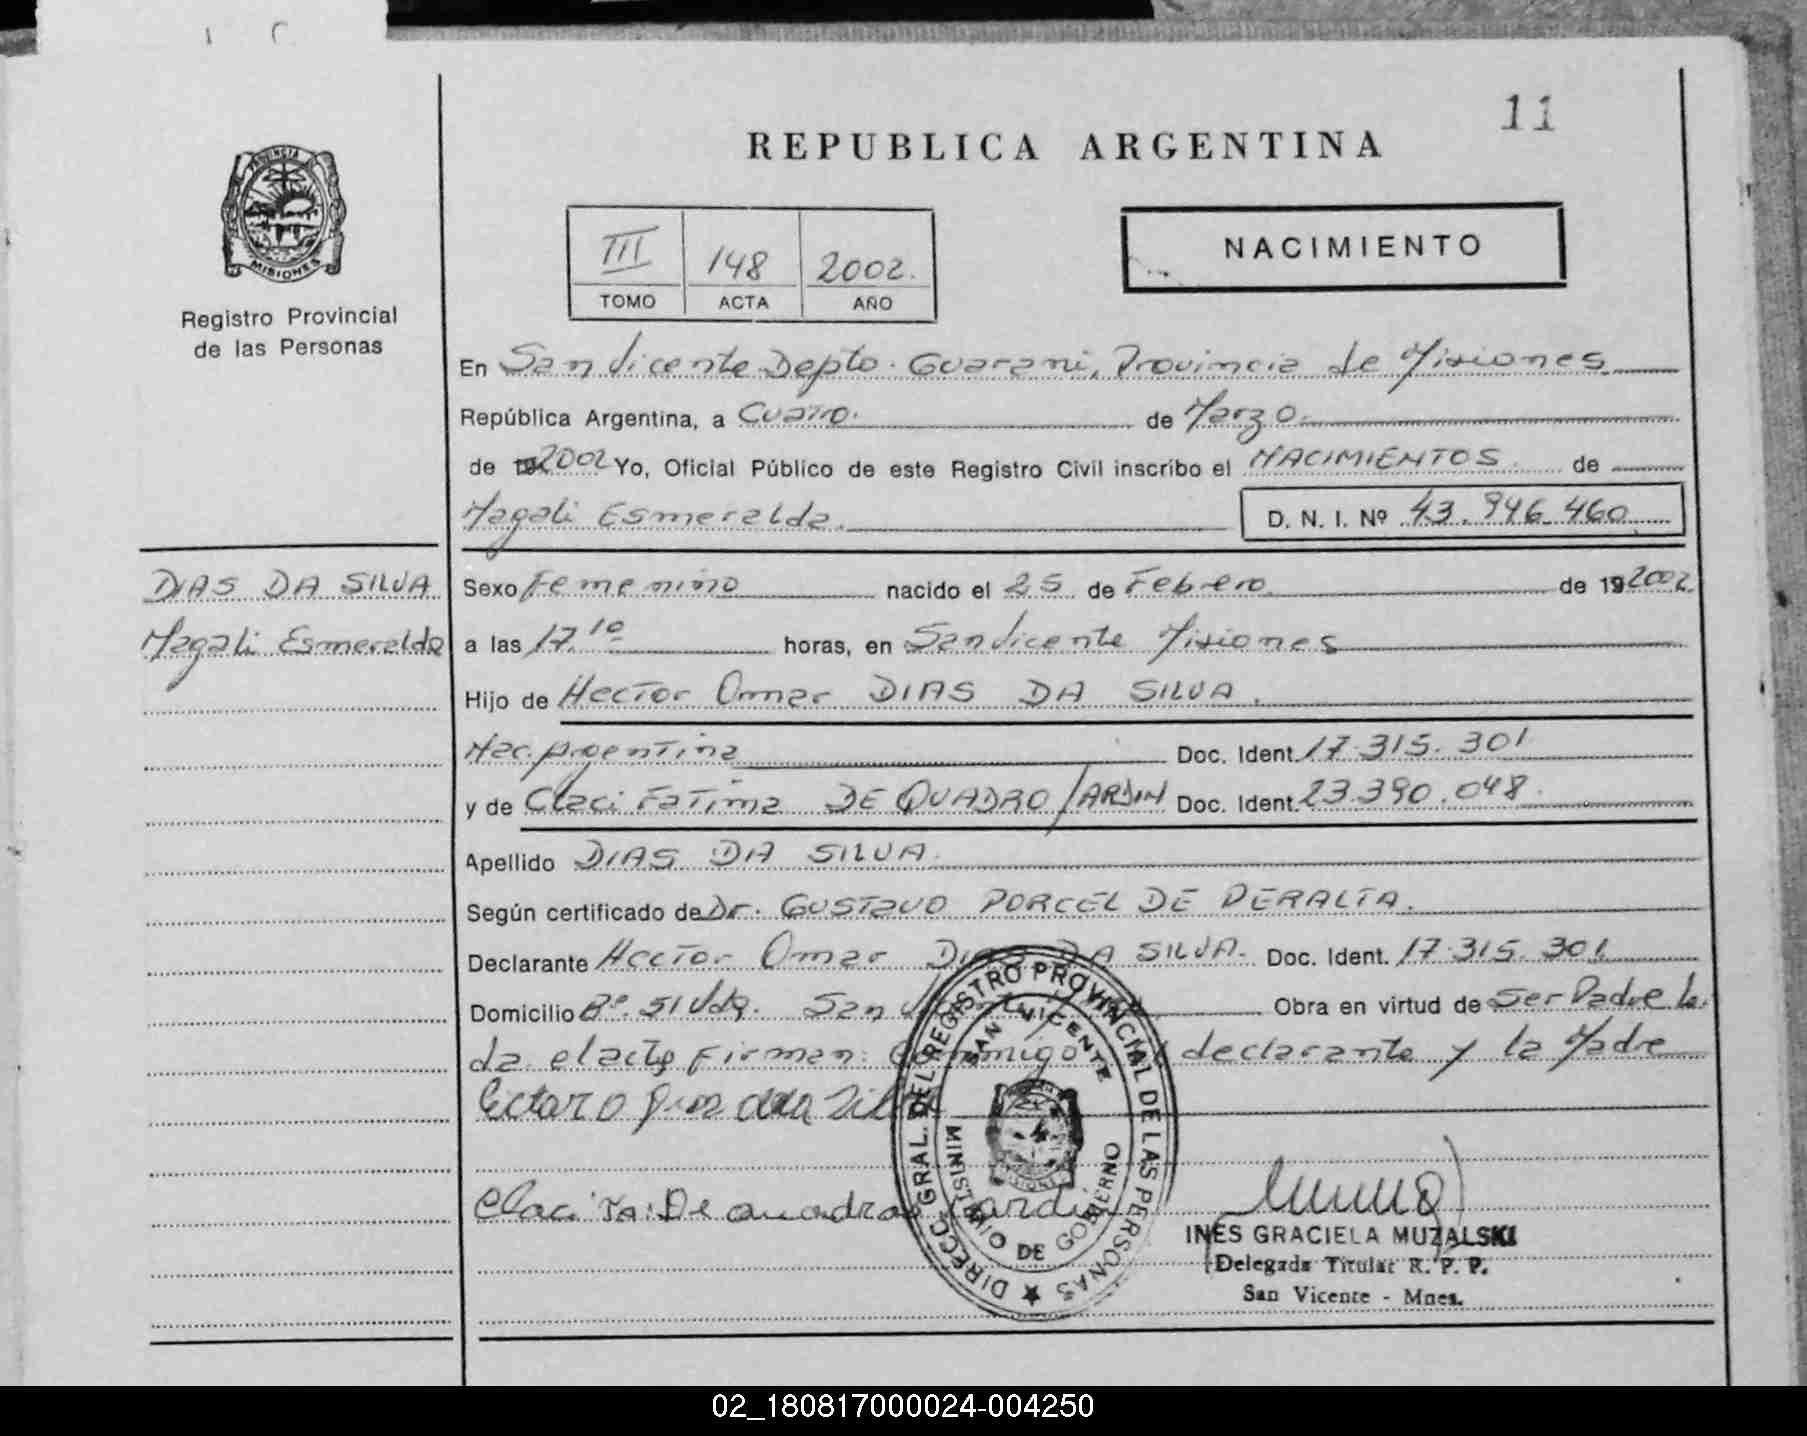 11
REPUBLICA ARGENTINA
PROVINCIA DE
MISIONES
Registro Provincial
de las Personas
III 148 2002.
TOMO ACTA AÑO
NACIMIENTO
En San Vicente Depto. Guarani, Provincia de Misiones
República Argentina, a Cuatro. de Marzo.
de 2002 Yo, Oficial Público de este Registro Civil inscribo el NACIMIENTOS. de
Magali Esmeralda. D. N. I. Nº 43.946.460
DIAS DA SILVA
Magali Esmeralda
Sexo Femenino nacido el 25 de Febrero de 19 2002.
a las 17.10 horas, en San Vicente Misiones
Hijo de Hector Omar DIAS DA SILVA.
Nac. Argentina Doc. Ident. 17.315.301
y de Claci Fatima DE QUADRO JARDIN Doc. Ident. 23.390.048.
Apellido DIAS DA SILVA.
Según certificado de Dr. GUSTAVO PORCEL DE PERALTA.
Declarante Hector Omar DIAS DA SILVA. Doc. Ident. 17.315.301.
Domicilio Bº. San Obra en virtud de Ser Padre le
da el acta Firman: Conmigo el declarante y la Madre
Claci Fa: De quadro Jardin
DIRECC. GRAL. DEL REGISTRO PROVINCIAL DE LAS PERSONAS
SAN VICENTE
MINISTERIO DE GOBIERNO
MISIONES
INES GRACIELA MUZALSKI
Delegada Titular R. P. P.
San Vicente - Mnes.
02_180817000024-004250